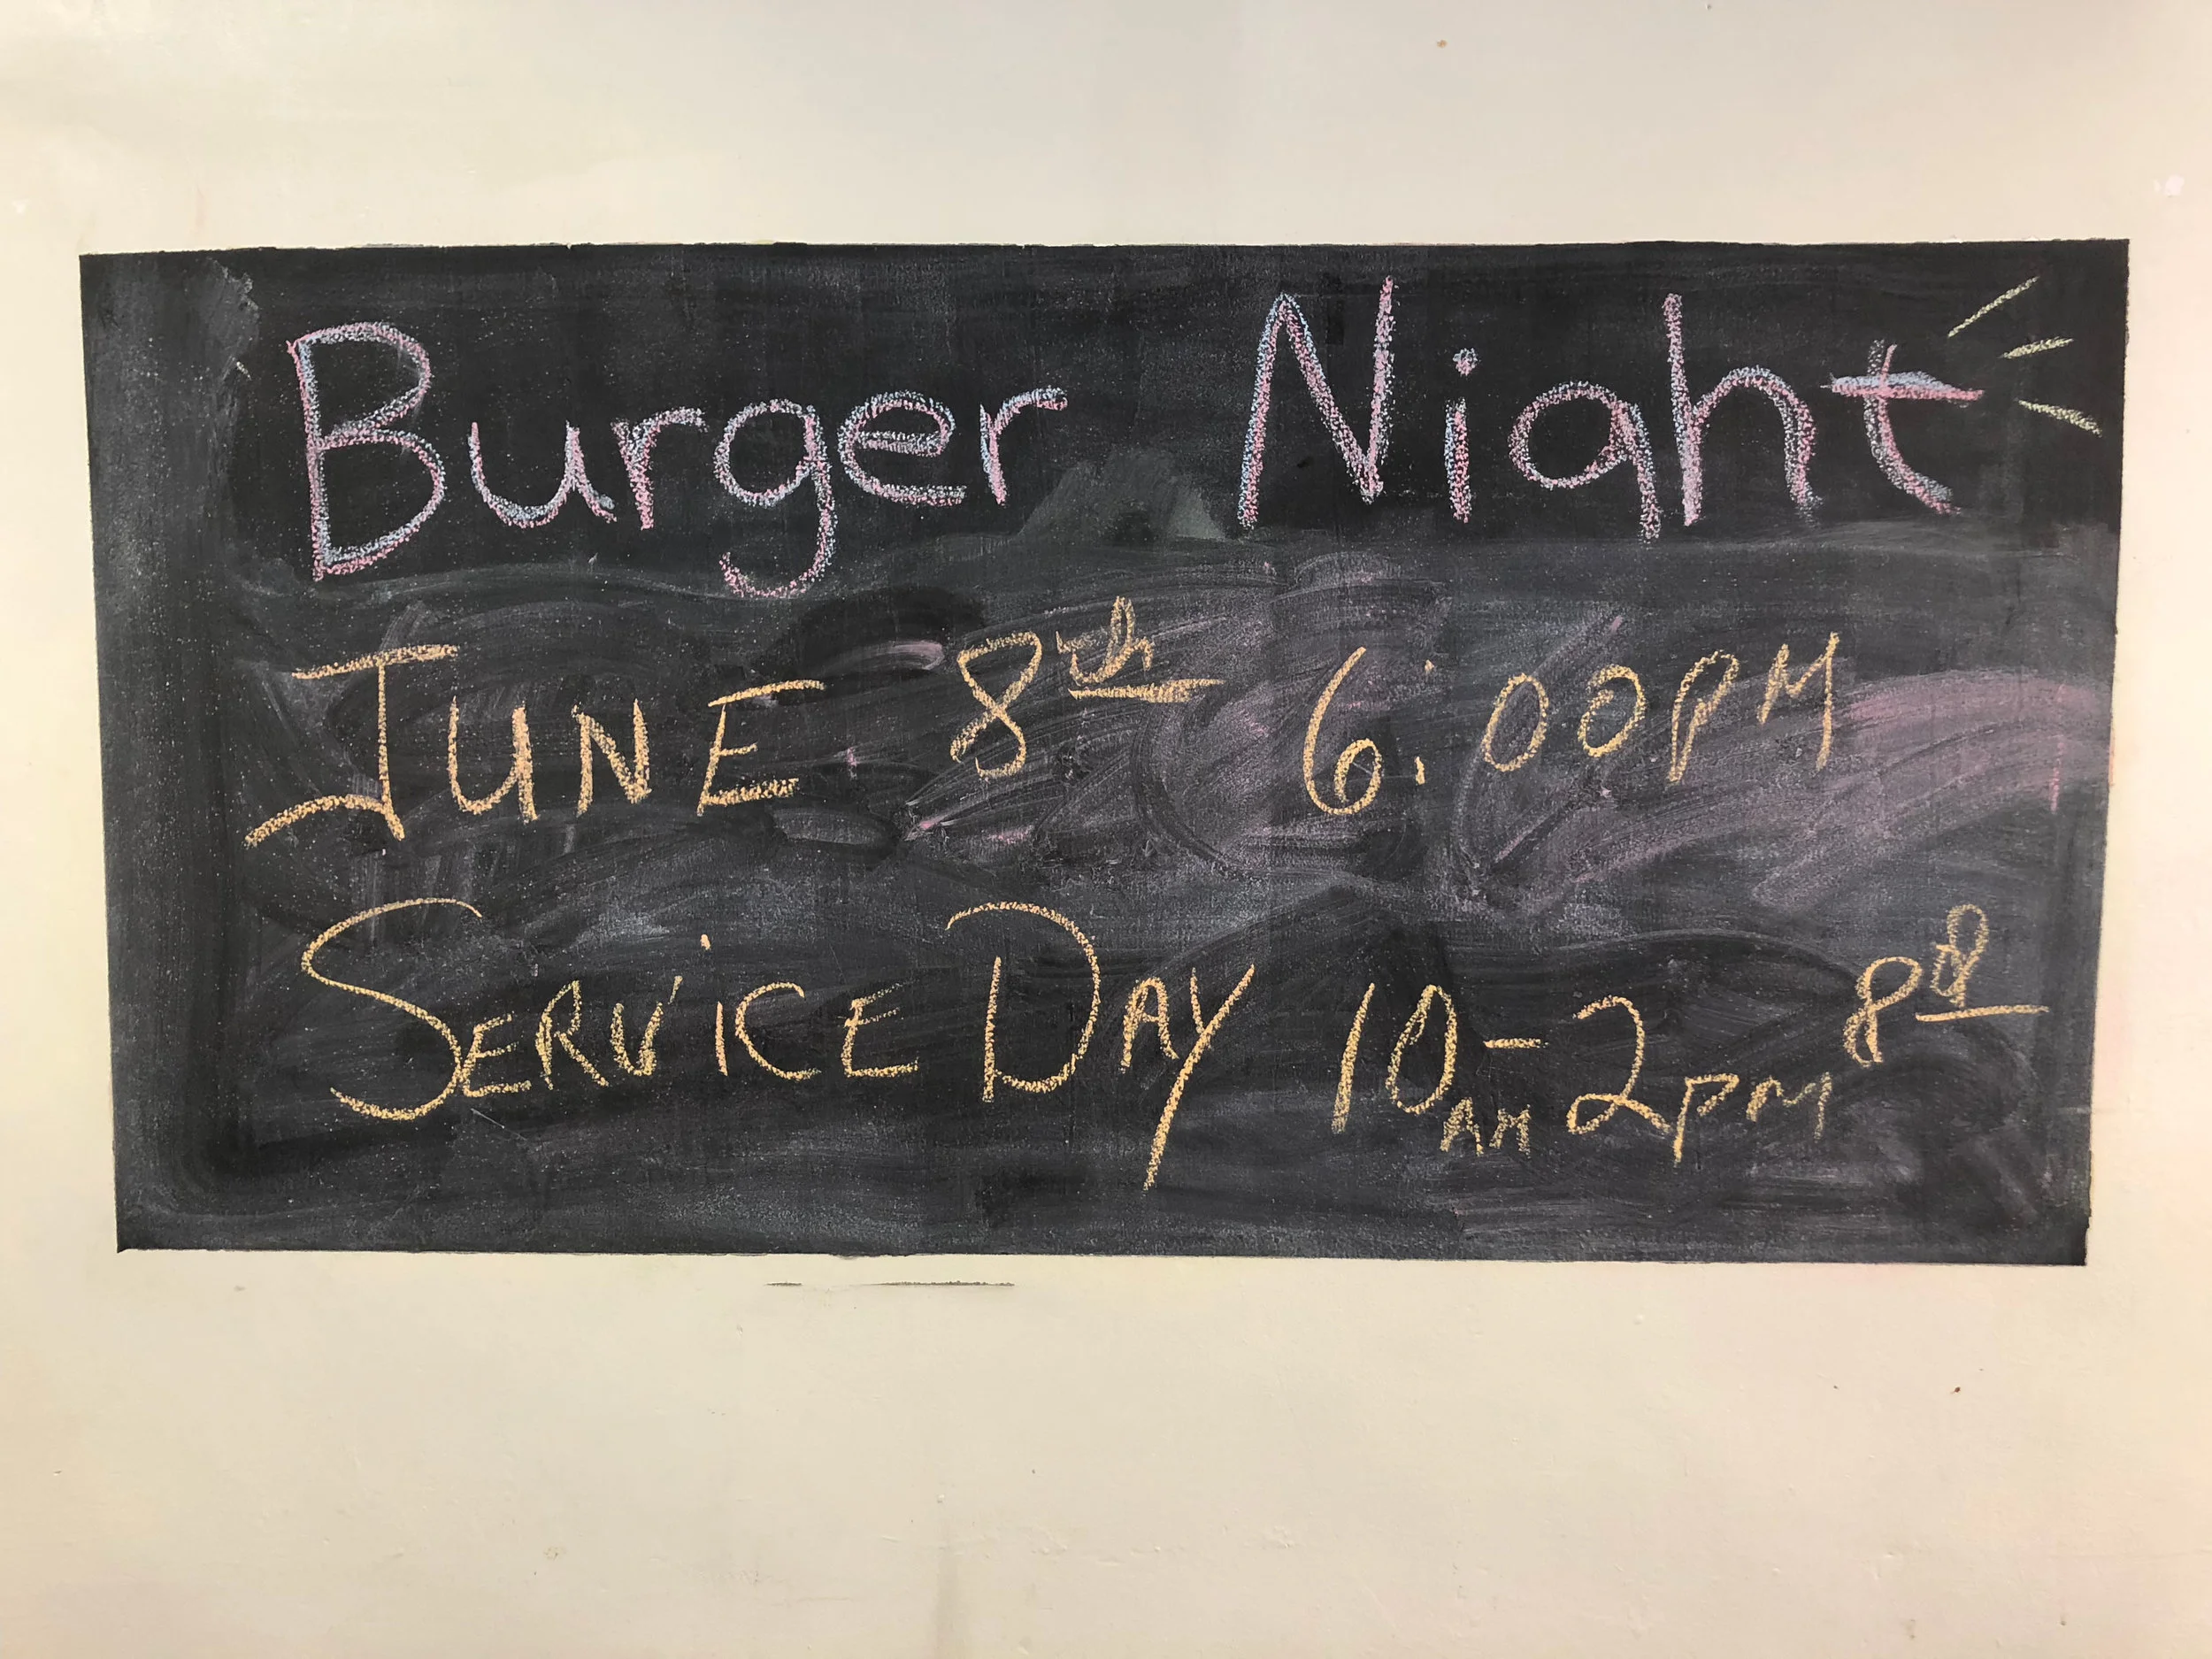 Burger Night
JUNE 8th 6:00PM
SERVICE DAY 10AM-2PM 8th